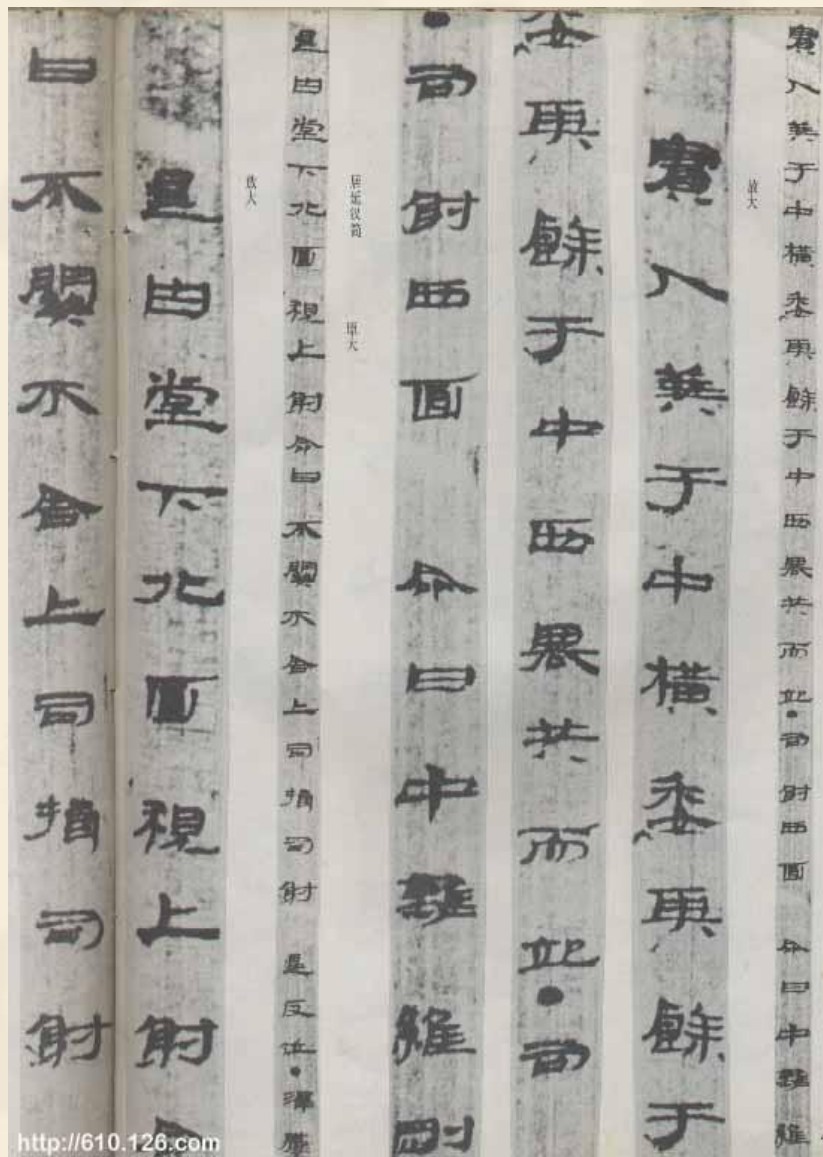 實八筭于中橫委其餘于中西興共而竢·司射西面 命曰中離維
放大
實八筭于中橫委其餘于
委其餘于中西興共而竢·司
·司射西面 命曰中離維剛
居延汉简 原大
是由堂下北面視上射命曰不關不舍上司揖司射 是反位·
放大
是由堂下北面視上射命
曰不關不舍上司揖司射
http://610.126.com